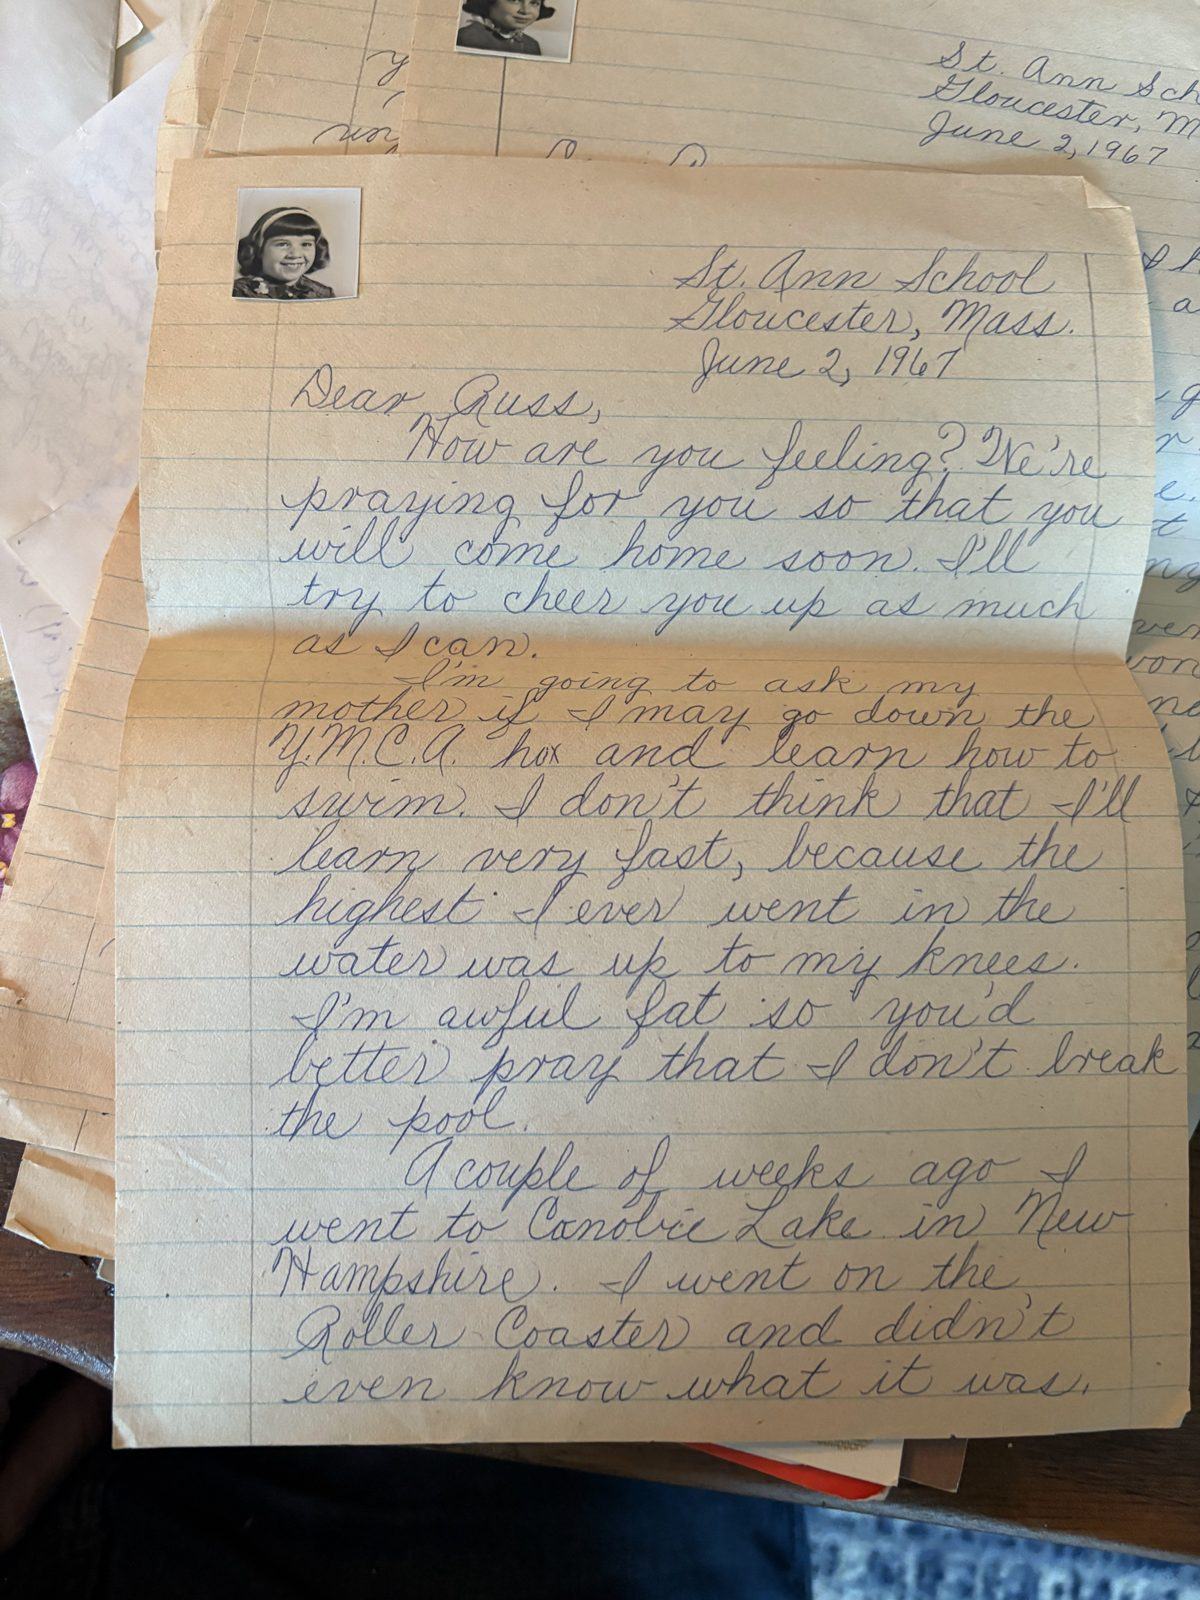 St. Ann Sch
Gloucester, M
June 2, 1967
St. Ann School
Gloucester, Mass.
June 2, 1967
Dear Russ,
How are you feeling? We're
praying for you so that you
will come home soon. I'll
try to cheer you up as much
as I can.
I'm going to ask my
mother if I may go down the
Y.M.C.A. and learn how to
swim. I don't think that I'll
learn very fast, because the
highest I ever went in the
water was up to my knees.
I'm awful fat so you'd
better pray that I don't break
the pool.
A couple of weeks ago I
went to Canobie Lake in New
Hampshire. I went on the
Roller Coaster and didn't
even know what it was.